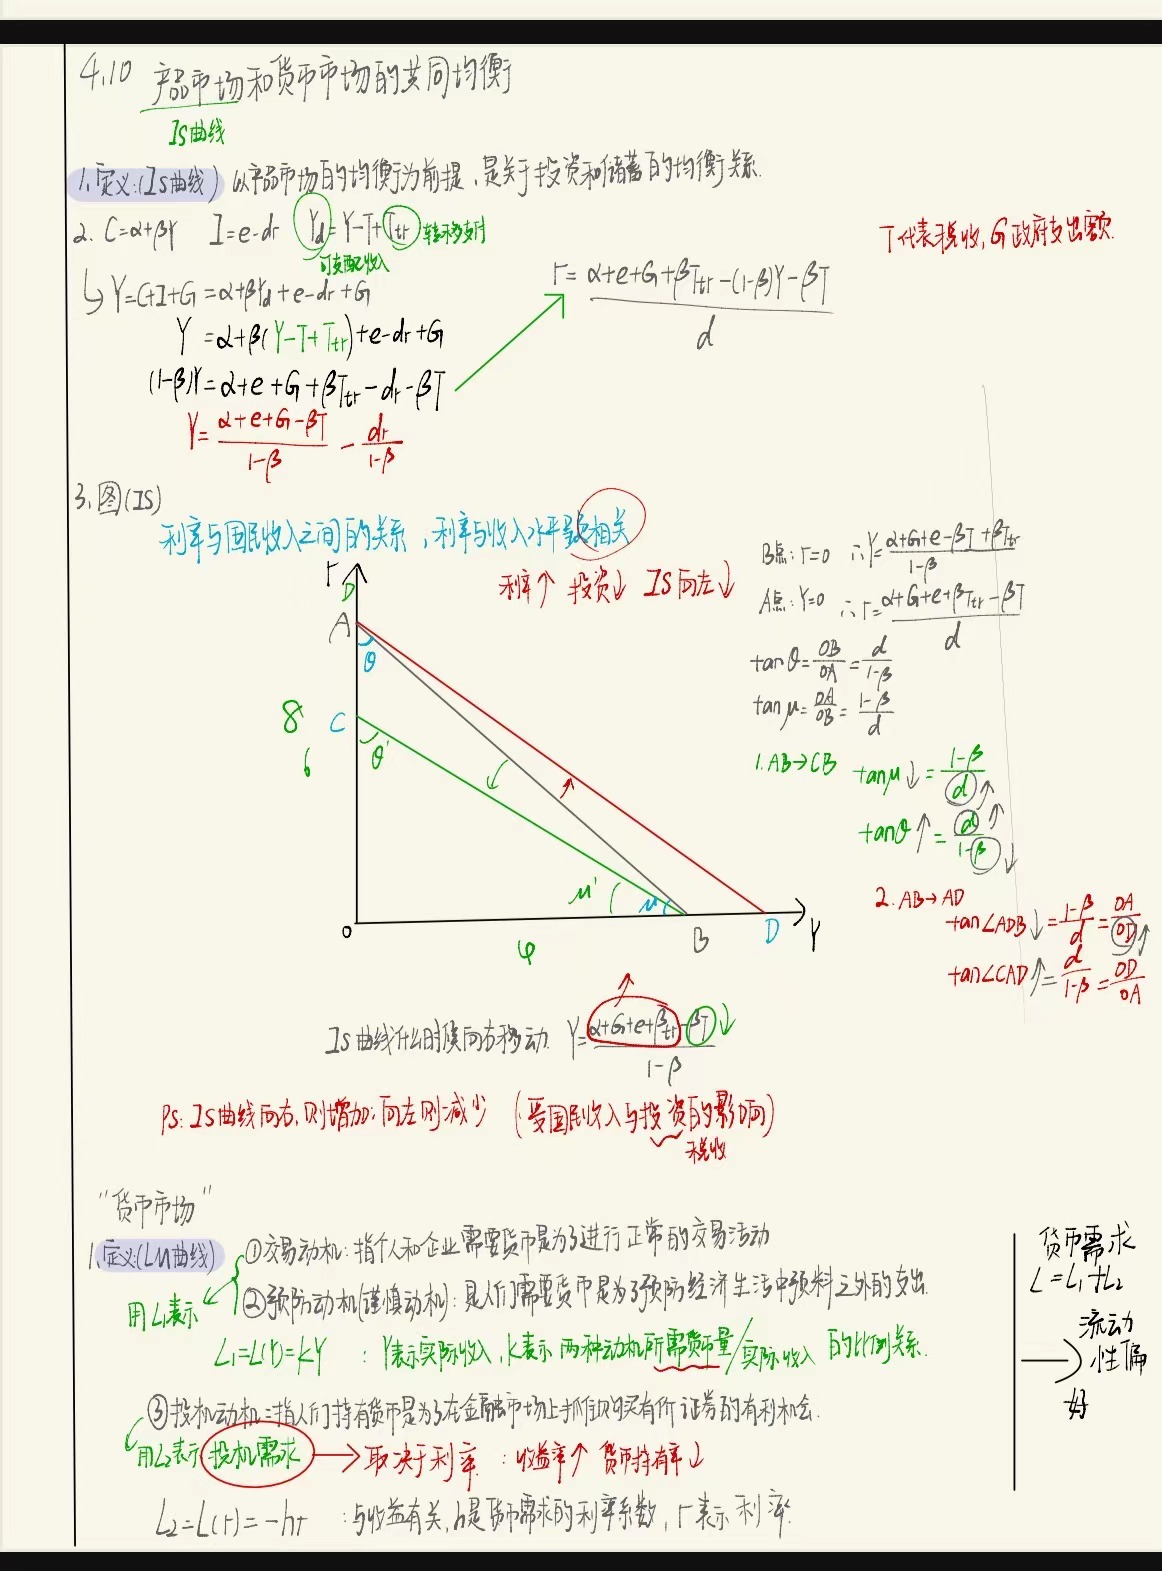 4.10 产品市场和货币市场的共同均衡
IS曲线
1.定义:(IS曲线) 以产品市场的均衡为前提,是关于投资和储蓄的均衡关系.
2. C=α+βY I=e-dr Yd=Y-T+Ttr 转移支付
可支配收入
T代表税收,G政府支出额.
↳Y=C+I+G=α+βYd+e-dr+G
Y=α+β(Y-T+Ttr)+e-dr+G
(1-β)Y=α+e+G+βTtr-dr-βT
r=α+e+G+βTtr-(1-β)Y-βT
d
Y=α+e+G-βT/1-β - dr/1-β
3.图(IS)
利率与国民收入之间的关系,利率与收入水平呈负相关
利率↑ 投资↓ IS向左↓
r
D
A
θ
8
C
6
θ'
μ'
μ
0
φ
B
D
Y
B点:r=0 ∴Y=α+G+e-βT+βTtr/1-β
A点:Y=0 ∴r=α+G+e+βTtr-βT/d
tanθ=OB/OA=d/1-β
tanμ=OA/OB=1-β/d
1.AB→CB tanμ↓=1-β/d↑
tanθ↑=d↑/1-β↓
2.AB→AD
tan∠ADB↓=1-β/d=OA/OD↑
tan∠CAD↑=d/1-β=OD/OA
IS曲线什么时候向右移动 Y=α+G+e+βTtr-βT↓/1-β
PS:IS曲线向右,则增加;向左则减少 (受国民收入与投资的影响)
税收
"货币市场"
1.定义:(LM曲线) ①交易动机:指个人和企业需要货币是为了进行正常的交易活动
用L1表示 ②预防动机(谨慎动机):是人们需要货币是为了预防经济生活中预料之外的支出.
L1=L(Y)=kY :Y表示实际收入,k表示两种动机所需货币量/实际收入 的比例关系.
③投机动机:指人们持有货币是为了在金融市场上抓住购买有价证券的有利机会.
用L2表示 投机需求 → 取决于利率 :收益率↑ 货币持有率↓
L2=L(r)=-hr :与收益有关,h是货币需求的利率系数,r表示利率.
货币需求
L=L1+L2
流动
→ 性偏
好